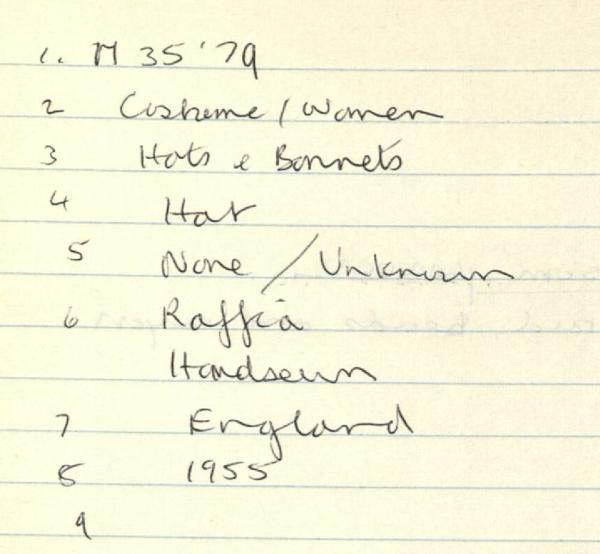 1. M 35 '79
2 Costume / Women
3 Hats & Bonnets
4 Hat
5 None / Unknown
6 Raffia
Handsewn
7 England
8 1955
9